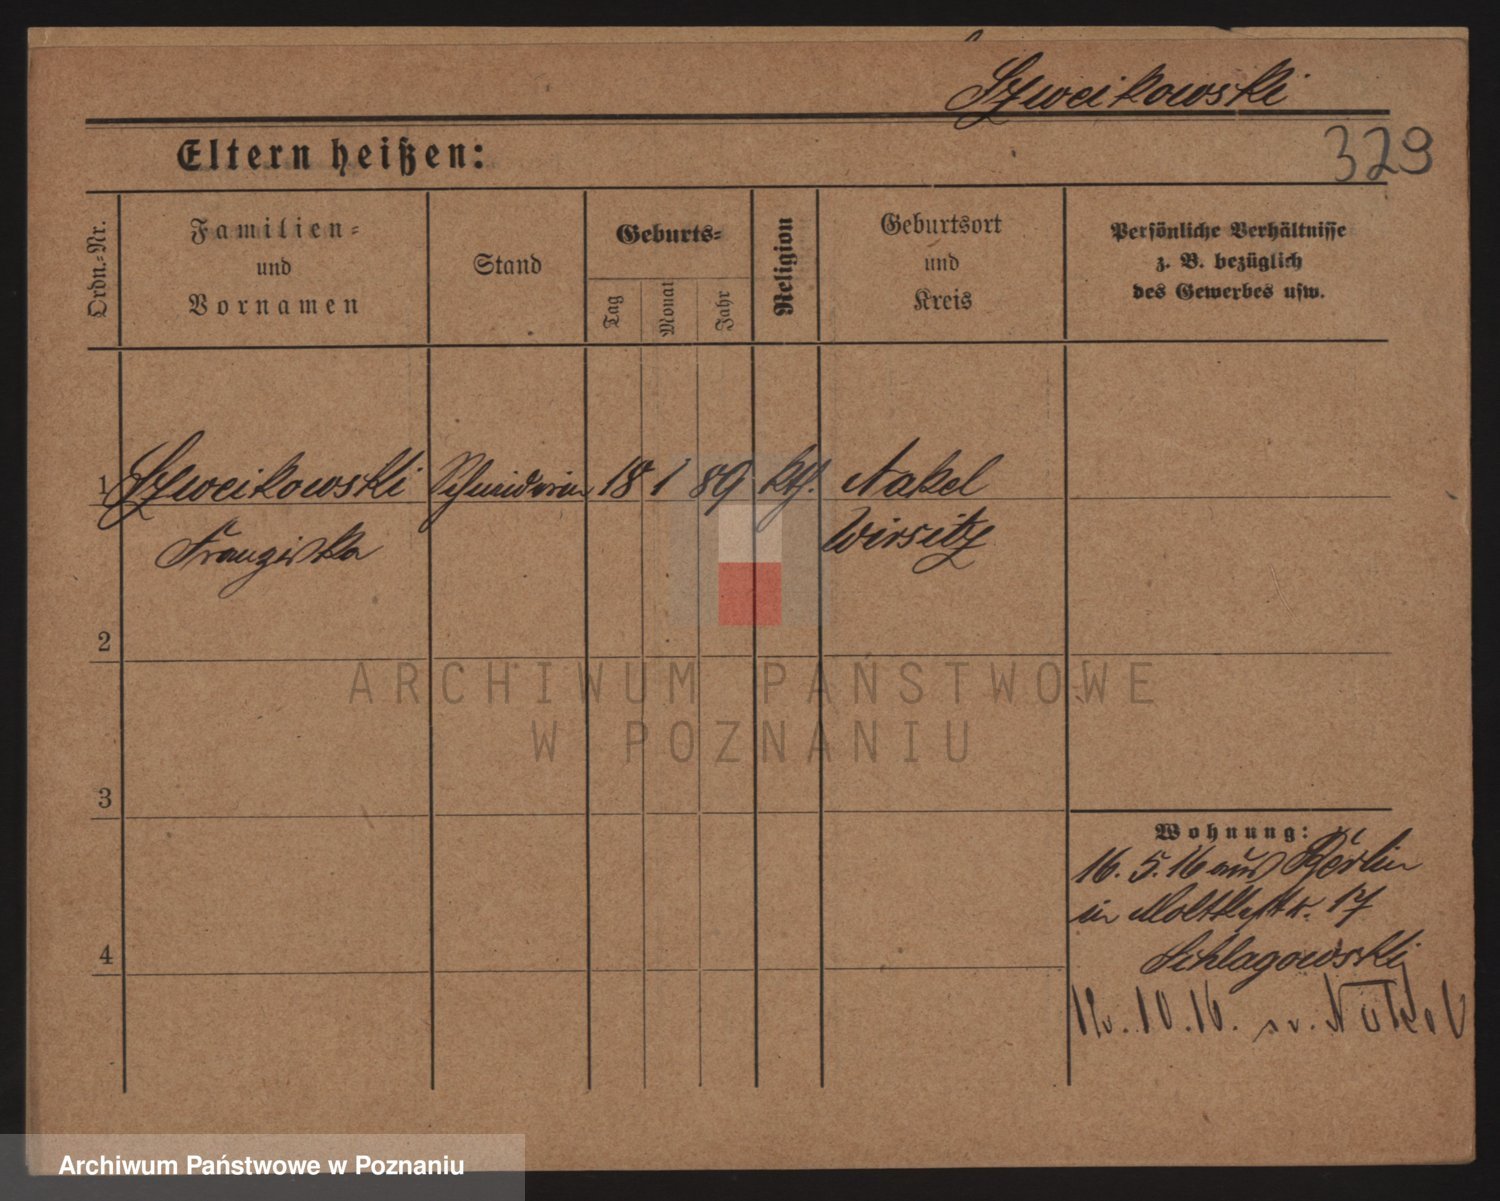 Szweikowski
Eltern heißen:
329
Ordn.-Nr.
Familien-
und
Vornamen
Stand
Geburts-
Tag
Monat
Jahr
Religion
Geburtsort
und
Kreis
Persönliche Verhältnisse
z. B. bezüglich
des Gewerbes usw.
1 Szweikowski Schneiderin 18 1 89 kth. Nakel
Franziska Wirsitz
2
3
4
Wohnung:
16. 5. 16 aus Berlin
in Moltkestr. 17
Schlagowski
10. 16.
ARCHIWUM PAŃSTWOWE
W POZNANIU
Archiwum Państwowe w Poznaniu